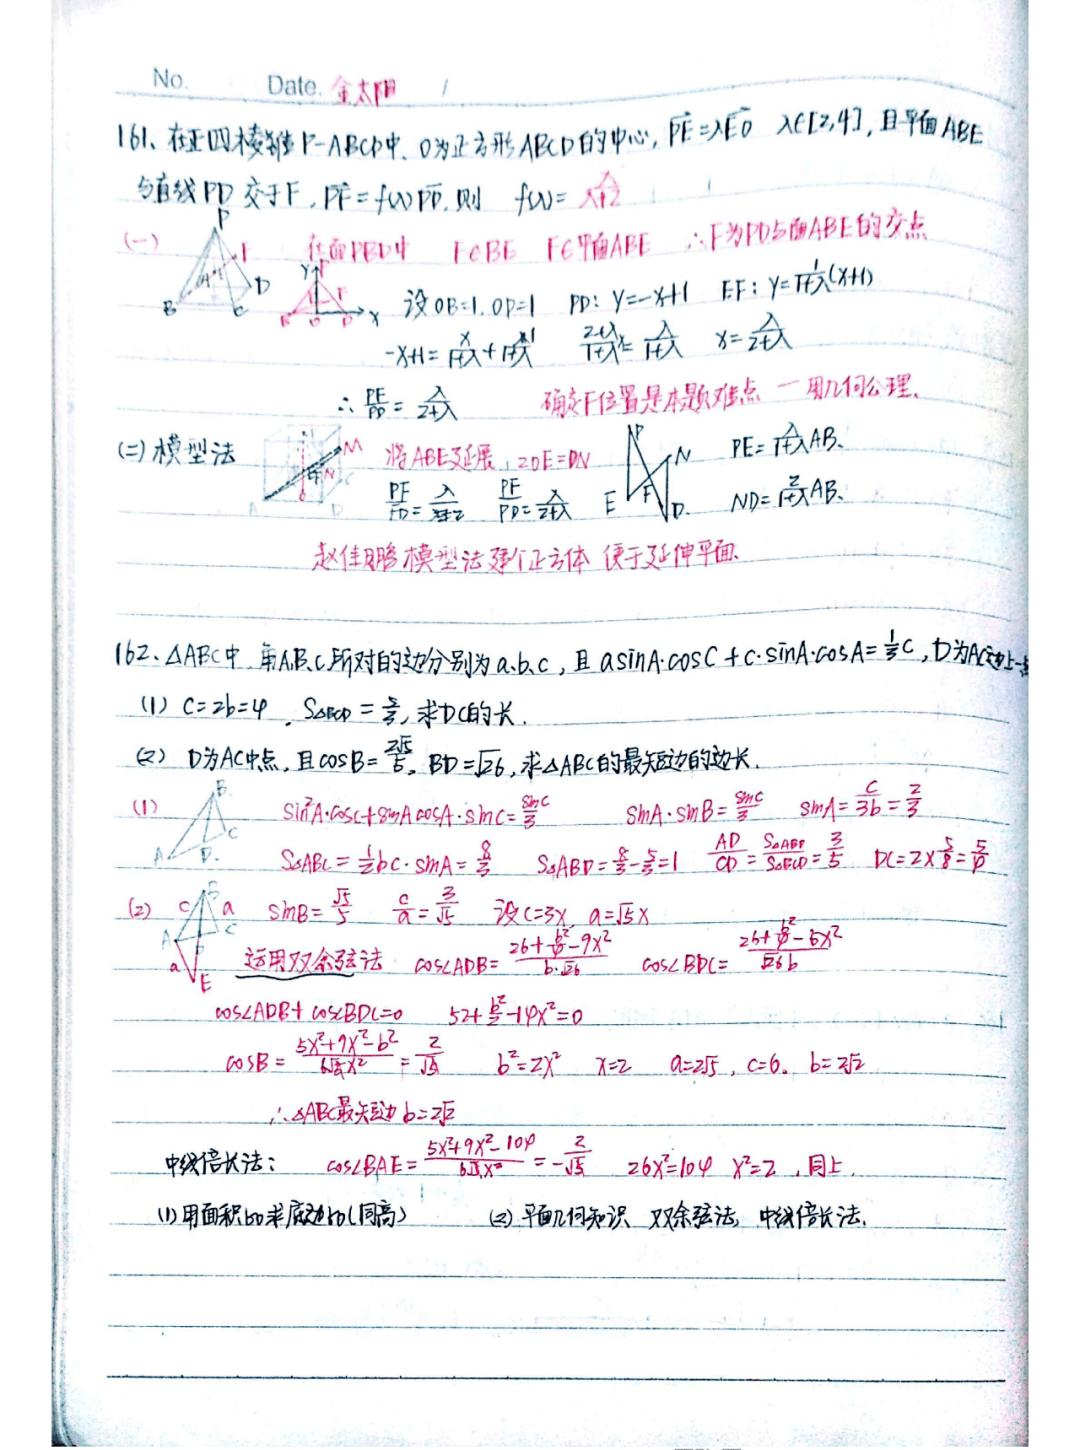 No. Date. 金太阳 /
161、在正四棱锥P-ABCD中、O为正方形ABCD的中心, PE=λEO λ∈[2,4], 且平面ABE
与直线PD 交于F, PF=f(λ)PD, 则 f(λ)= λ/(λ+2)
(一) 在面PBD中 F∈BE F∈平面ABE ∴F为PD与面ABE的交点
设OB=1. OP=1 PD: y=-x+1 EF: y=1/(1+λ)(x+1)
-x+1= x/(1+λ) + 1/(1+λ) (2+λ)/(1+λ)x= λ/(1+λ) x= λ/(2+λ)
∴ PF/PD = λ/(2+λ) 确定F位置是本题难点 一 用几何公理、
(二) 模型法 将ABE延展, 2OE=DN PE= λ/(1+λ)AB、
PF/FD= λ/2 PF/PD= λ/(2+λ) ND= 2/(1+λ)AB、
赵佳鹏模型法 建个正方体 便于延伸平面、
162、△ABC中, 角A.B.C所对的边分别为a.b.c, 且 asinA·cosC+c·sinA·cosA=1/3c, D为AC边上一点
(1) c=2b=4, S△BCD=5/3, 求DC的长.
(2) D为AC中点, 且cosB=2√5/5, BD=√26, 求△ABC的最短边的边长.
(1) sin²A·cosC+sinAcosA·sinC=sinC/3 sinA·sinB=sinC/3 sinA=c/3b=2/3
S△ABC=1/2bc·sinA=8/3 S△ABD=8/3-5/3=1 AD/CD=S△ABD/S△BCD=3/5 DC=2×5/8=5/4
(2) sinB=√5/5 c/a=3/√5 设c=3x, a=√5x
运用双余弦法 cos∠ADB=(26+b²/4-9x²)/(b·√26) cos∠BDC=(26+b²/4-5x²)/(√26b)
cos∠ADB+cos∠BDC=0 52+b²/2-14x²=0
cosB=(5x²+9x²-b²)/(6√5x²)=2/√5 b²=2x² x=2 a=2√5, c=6. b=2√2
∴△ABC最短边 b=2√2
中线倍长法: cos∠BAE=(5x²+9x²-104)/(6√5x²)=-2/√5 26x²=104 x²=2, 同上.
(1) 用面积比求底边比(同高) (2) 平面几何知识、双余弦法, 中线倍长法.